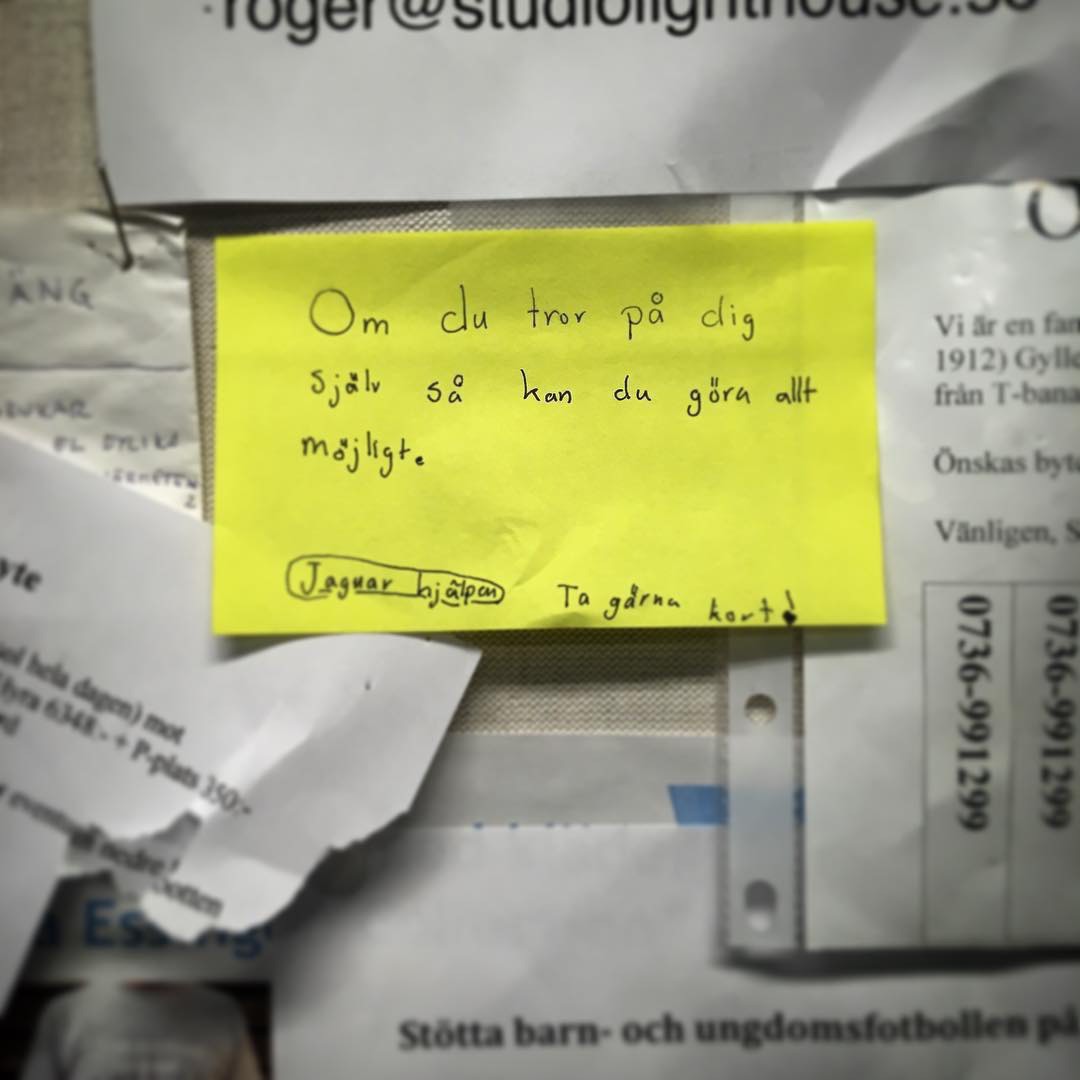 roger@studiolighthouse.se
ÄNG
Om du tror på dig
själv så kan du göra allt
möjligt.
Jaguar hjälpen Ta gärna kort!
Vi är en fam
1912) Gylle
från T-bana
Önskas byte
Vänligen, S
0736-991299
0736-991299
yte
hela dagen) mot
6348:- + P-plats 350:-
nedre
botten
Stötta barn- och ungdomsfotbollen på